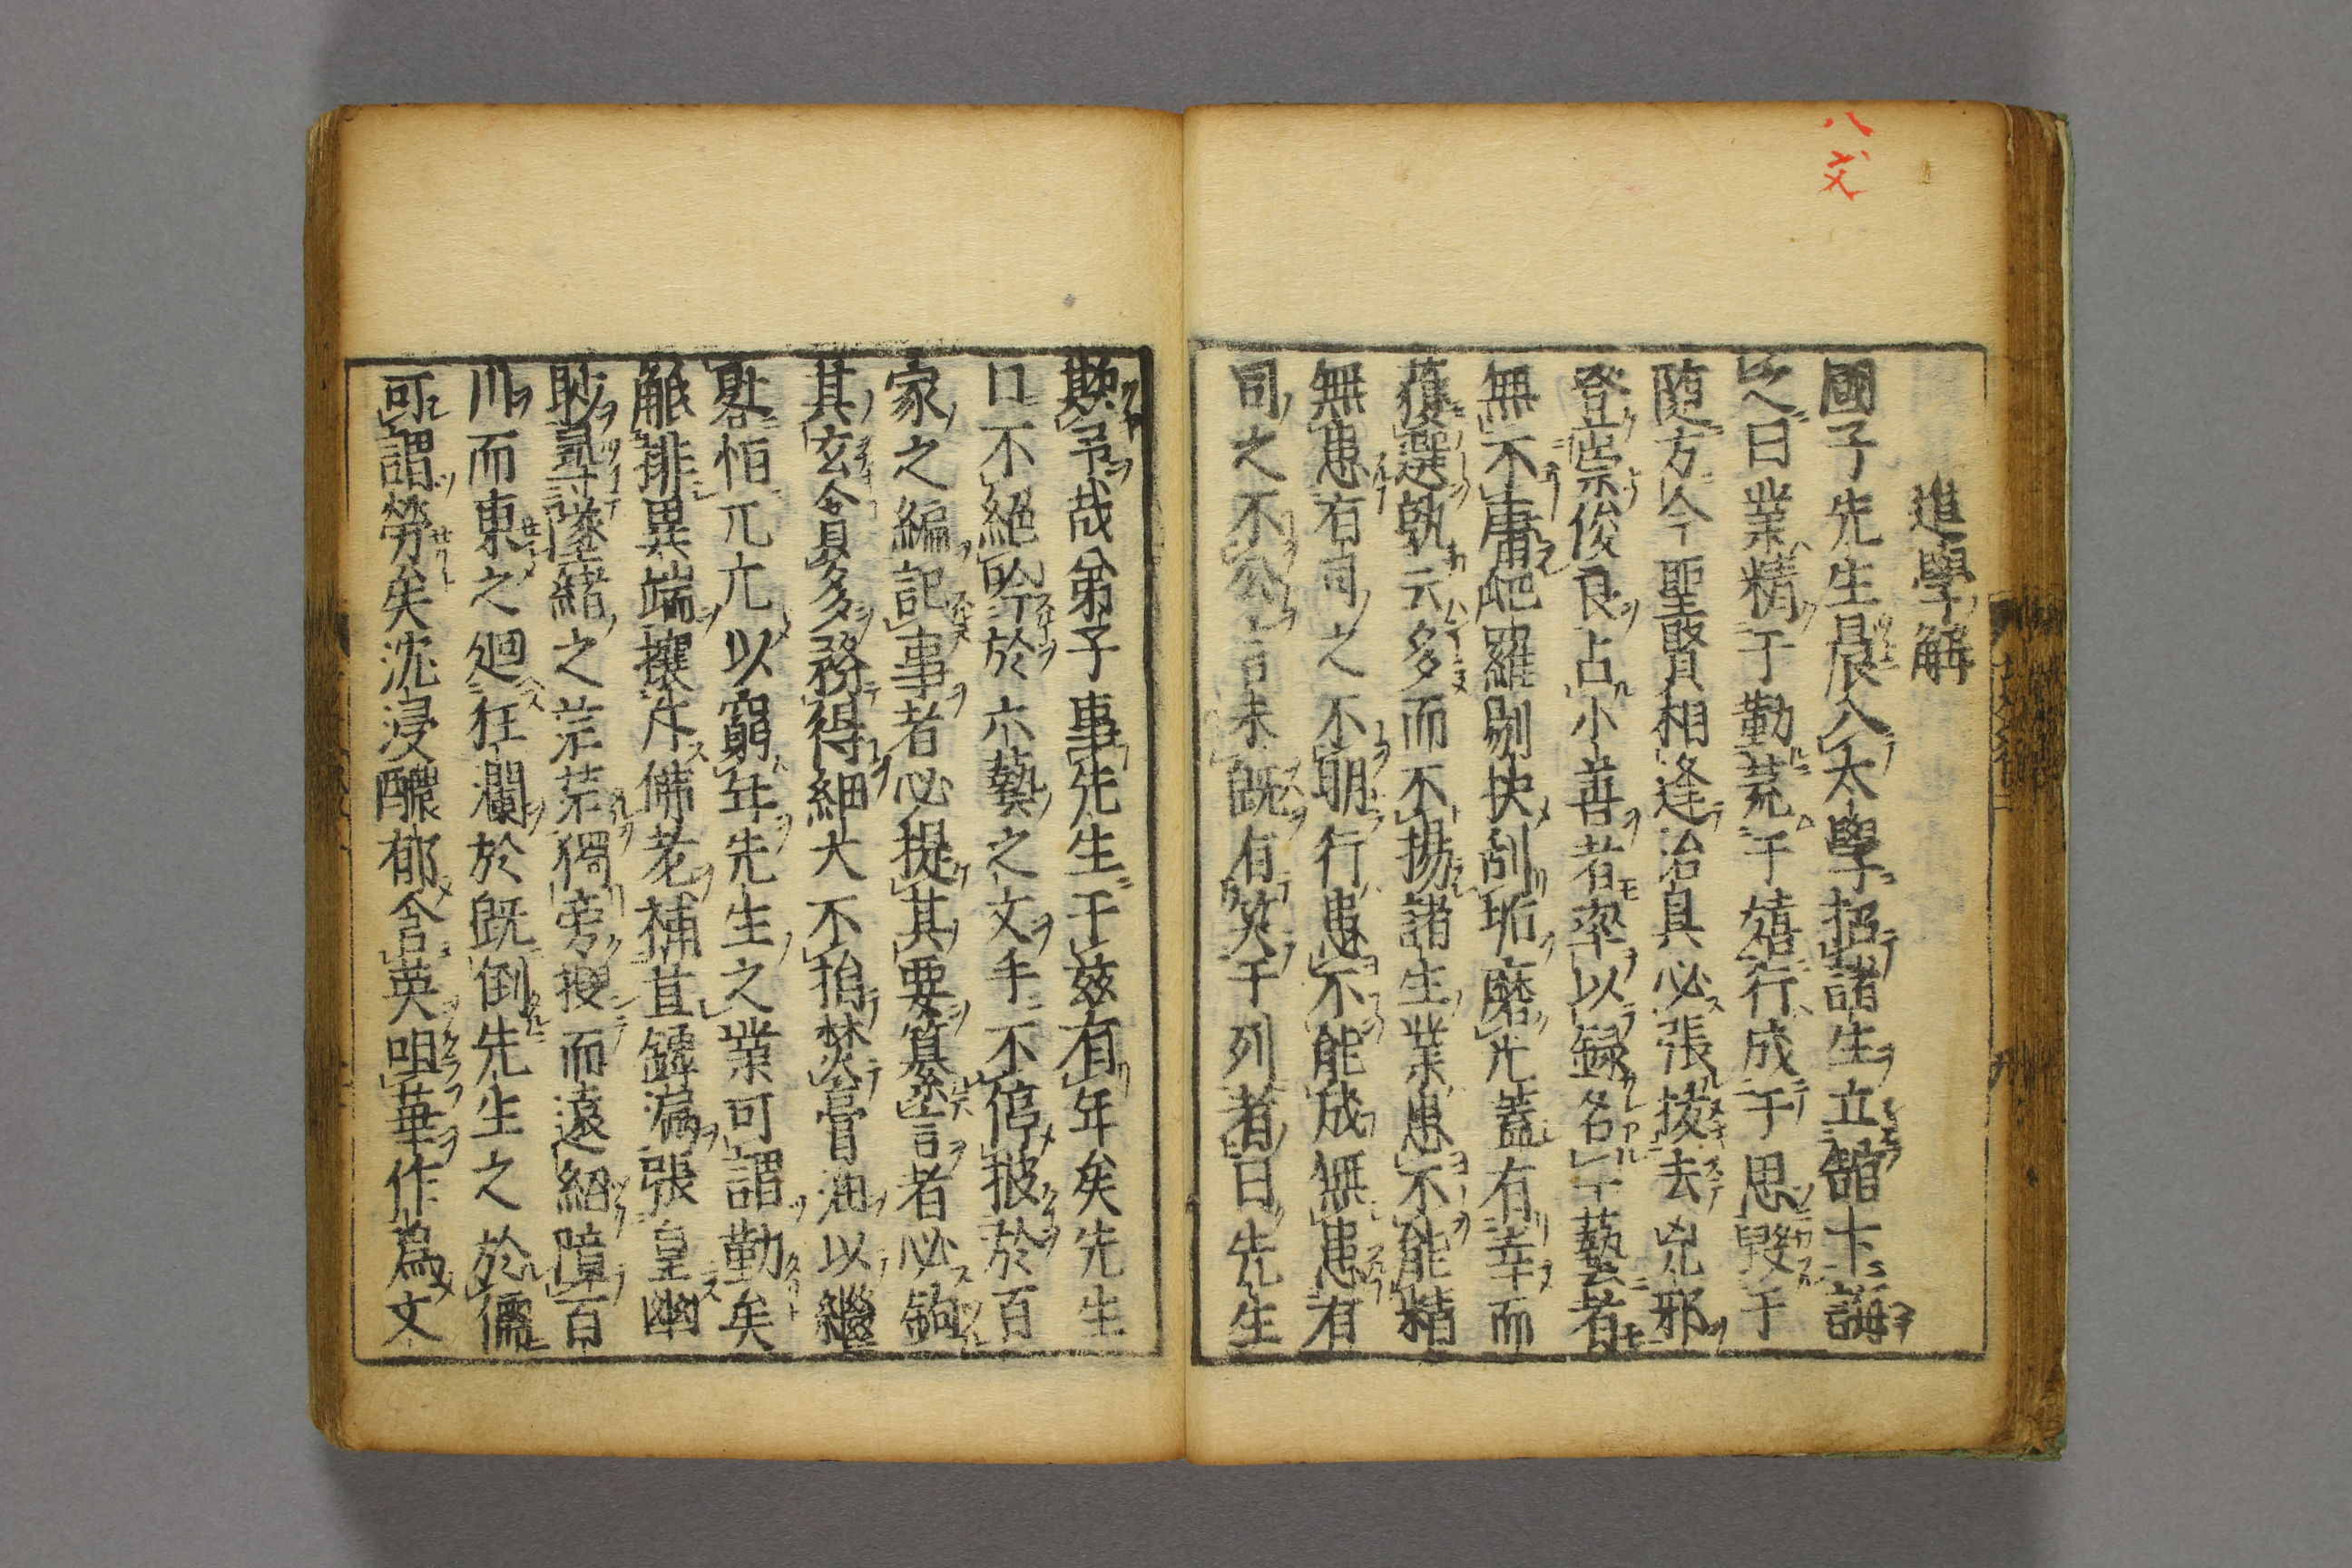 八
文
進學解
國子先生晨入太學招諸生立舘下誨
之曰業精于勤荒于嬉行成于思毀于
随方今聖賢相逢治具必張拔去兇邪
登崇俊良占小善者率以録名一藝者
無不庸爬羅剔抉刮垢磨光蓋有幸而
獲選孰云多而不揚諸生業患不能精
無患有司之不明行患不能成無患有
司之不公言未既有笑于列者曰先生
欺予哉弟子事先生于兹有年矣先生
口不絶吟於六藝之文手不停披於百
家之編記事者必提其要纂言者必鉤
其玄貪多務得細大不捐焚膏油以繼
晷恒兀兀以窮年先生之業可謂勤矣
觝排異端攘斥佛老補苴罅漏張皇幽
眇尋墜緒之茫茫獨旁搜而遠紹障百
川而東之廻狂瀾於既倒先生之於儒
可謂勞矣沈浸醲郁含英咀華作爲文